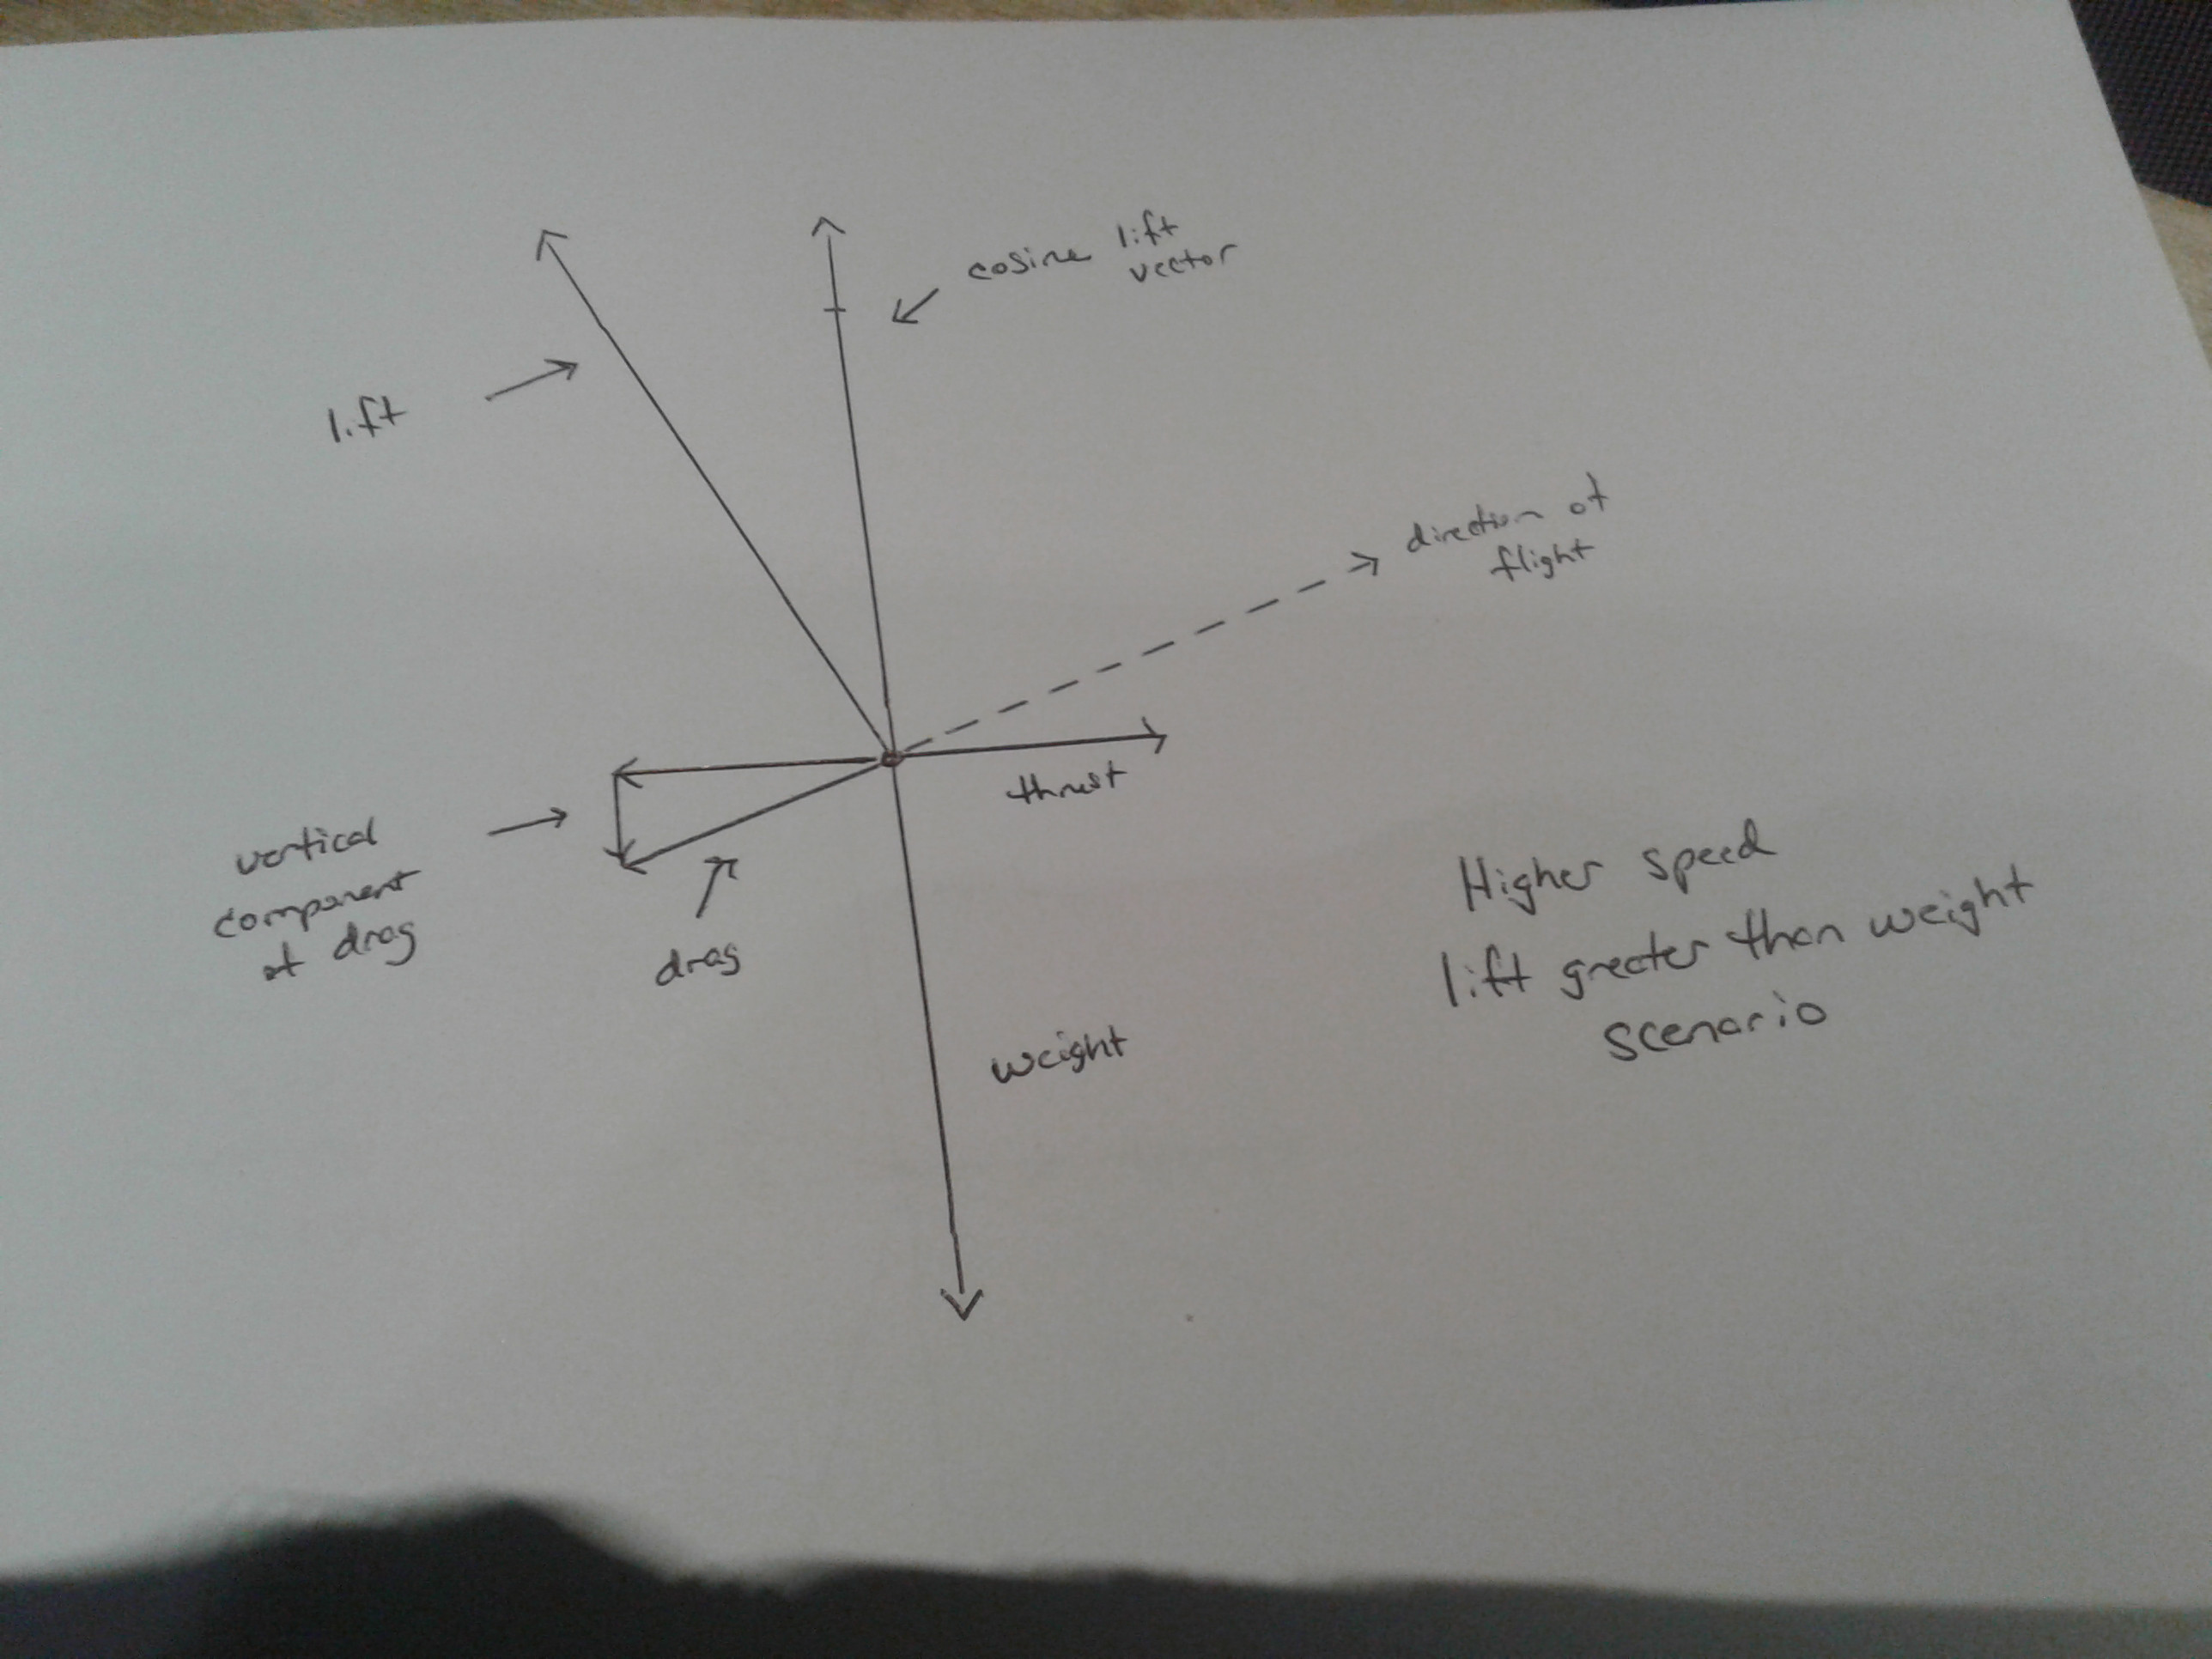 cosine lift
vector
lift
direction of
flight
thrust
vertical
component
of drag
drag
weight
Higher speed
lift greater than weight
scenario